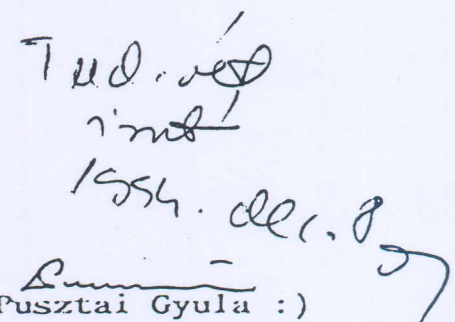 Tud. vét
1994. dec. 8
Pusztai Gyula :)